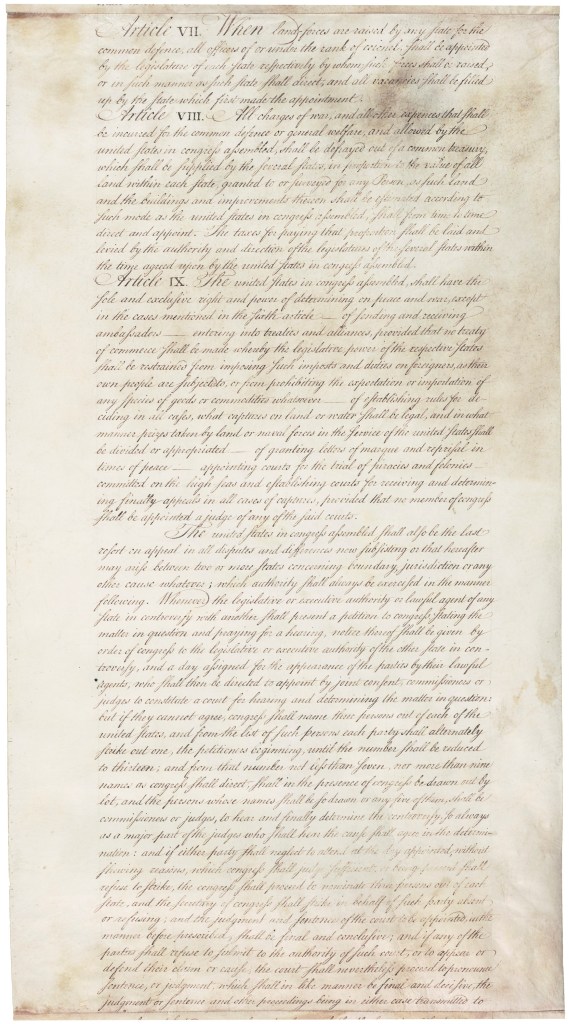 Article VII. When land-forces are raised by any state for the
common defence, all officers of or under the rank of colonel, shall be appointed
by the legislature of each state respectively by whom such forces shall be raised,
or in such manner as such state shall direct; and all vacancies shall be filled
up by the state which first made the appointment.
Article VIII. All charges of war, and all other expences that shall
be incurred for the common defence or general welfare, and allowed by the
united states in congress assembled, shall be defrayed out of a common treasury,
which shall be supplied by the several states, in proportion to the value of all
land within each state, granted to or surveyed for any Person, as such land
and the buildings and improvements thereon shall be estimated according to
such mode as the united states in congress assembled, shall from time to time
direct and appoint. The taxes for paying that proportion shall be laid and
levied by the authority and direction of the legislatures of the several states within
the time agreed upon by the united states in congress assembled.
Article IX. The united states in congress assembled, shall have the
sole and exclusive right and power of determining on peace and war, except
in the cases mentioned in the sixth article — of sending and receiving
ambassadors — entering into treaties and alliances, provided that no treaty
of commerce shall be made whereby the legislative power of the respective states
shall be restrained from imposing such imposts and duties on foreigners, as their
own people are subjected to, or from prohibiting the exportation or importation of
any species of goods or commodities whatsoever — of establishing rules for de-
ciding in all cases, what captures on land or water shall be legal, and in what
manner prizes taken by land or naval forces in the service of the united states shall
be divided or appropriated — of granting letters of marque and reprisal in
times of peace — appointing courts for the trial of piracies and felonies
committed on the high seas and establishing courts for receiving and determin-
ing finally appeals in all cases of captures, provided that no member of congress
shall be appointed a judge of any of the said courts.
The united states in congress assembled shall also be the last
resort on appeal in all disputes and differences now subsisting or that hereafter
may arise between two or more states concerning boundary, jurisdiction or any
other cause whatever; which authority shall always be exercised in the manner
following. Whenever the legislative or executive authority or lawful agent of any
state in controversy with another shall present a petition to congress, stating the
matter in question and praying for a hearing, notice thereof shall be given by
order of congress to the legislative or executive authority of the other state in con-
troversy, and a day assigned for the appearance of the parties by their lawful
agents, who shall then be directed to appoint by joint consent, commissioners or
judges to constitute a court for hearing and determining the matter in question:
but if they cannot agree, congress shall name three persons out of each of the
united states, and from the list of such persons each party shall alternately
strike out one, the petitioners beginning, until the number shall be reduced
to thirteen; and from that number not less than seven, nor more than nine
names as congress shall direct, shall in the presence of congress be drawn out by
lot, and the persons whose names shall be so drawn or any five of them, shall be
commissioners or judges, to hear and finally determine the controversy, so always
as a major part of the judges who shall hear the cause shall agree in the determi-
nation: and if either party shall neglect to attend at the day appointed, without
shewing reasons, which congress shall judge sufficient, or being present shall
refuse to strike, the congress shall proceed to nominate three persons out of each
state, and the secretary of congress shall strike in behalf of such party absent
or refusing; and the judgment and sentence of the court to be appointed, in the
manner before prescribed, shall be final and conclusive; and if any of the
parties shall refuse to submit to the authority of such court, or to appear or
defend their claim or cause, the court shall nevertheless proceed to pronounce
sentence, or judgment, which shall in like manner be final and decisive, the
judgment or sentence and other proceedings being in either case transmitted to